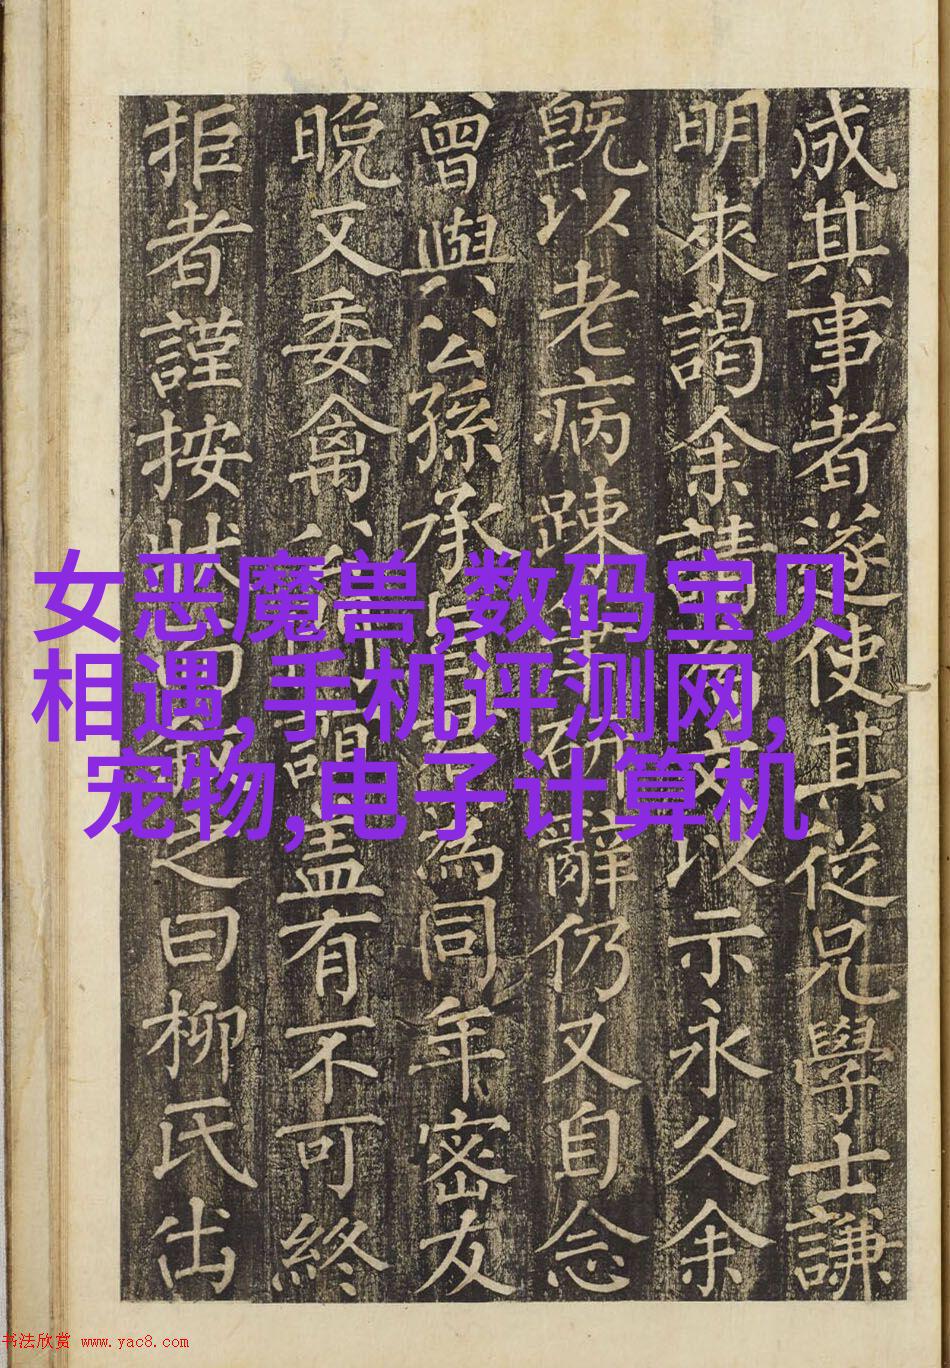 成其事者遂使其從兄學士謙
明來謁余請文以示永久余
既以老病踈研辭仍又自念
曾與公孫承為同年密友
晚又委禽誼盖有不可終
拒者謹按狀而叙之曰柳氏出
女恶魔兽,数码宝贝
相遇,手机评测网,
宠物,电子计算机
书法欣赏 www.yac8.com